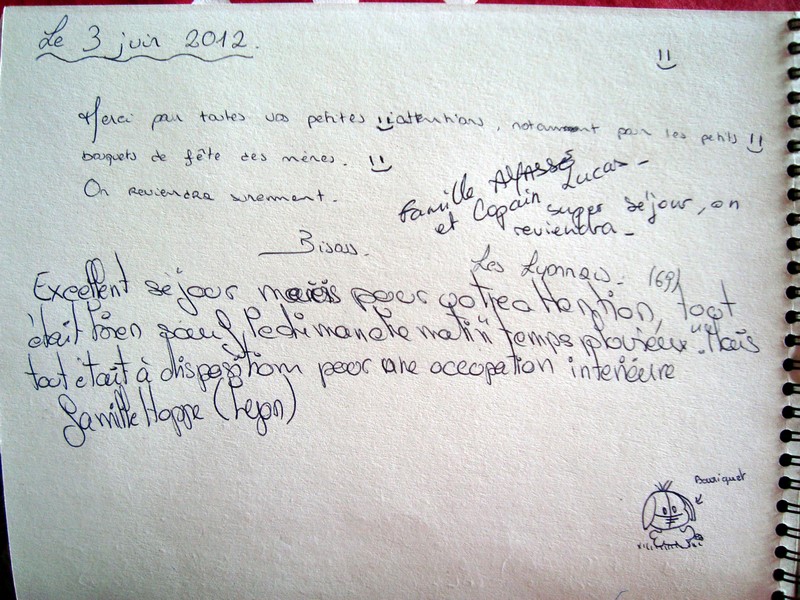 Le 3 juin 2012.
Merci pour toutes vos petites attentions, notamment pour les petits
bouquets de fête des mères.
On reviendra surement.
Bisous.
Famille
et Copain Lucas -
super séjour, on
reviendra -
Les Lyonnais - (69)
Excellent séjour mercis pour votre attention, tout
était bien sauf le dimanche matin "temps pluvieux". Mais
tout était à disposition pour une occupation interieure
famille Hoppe (Lyon)
Bouriquet